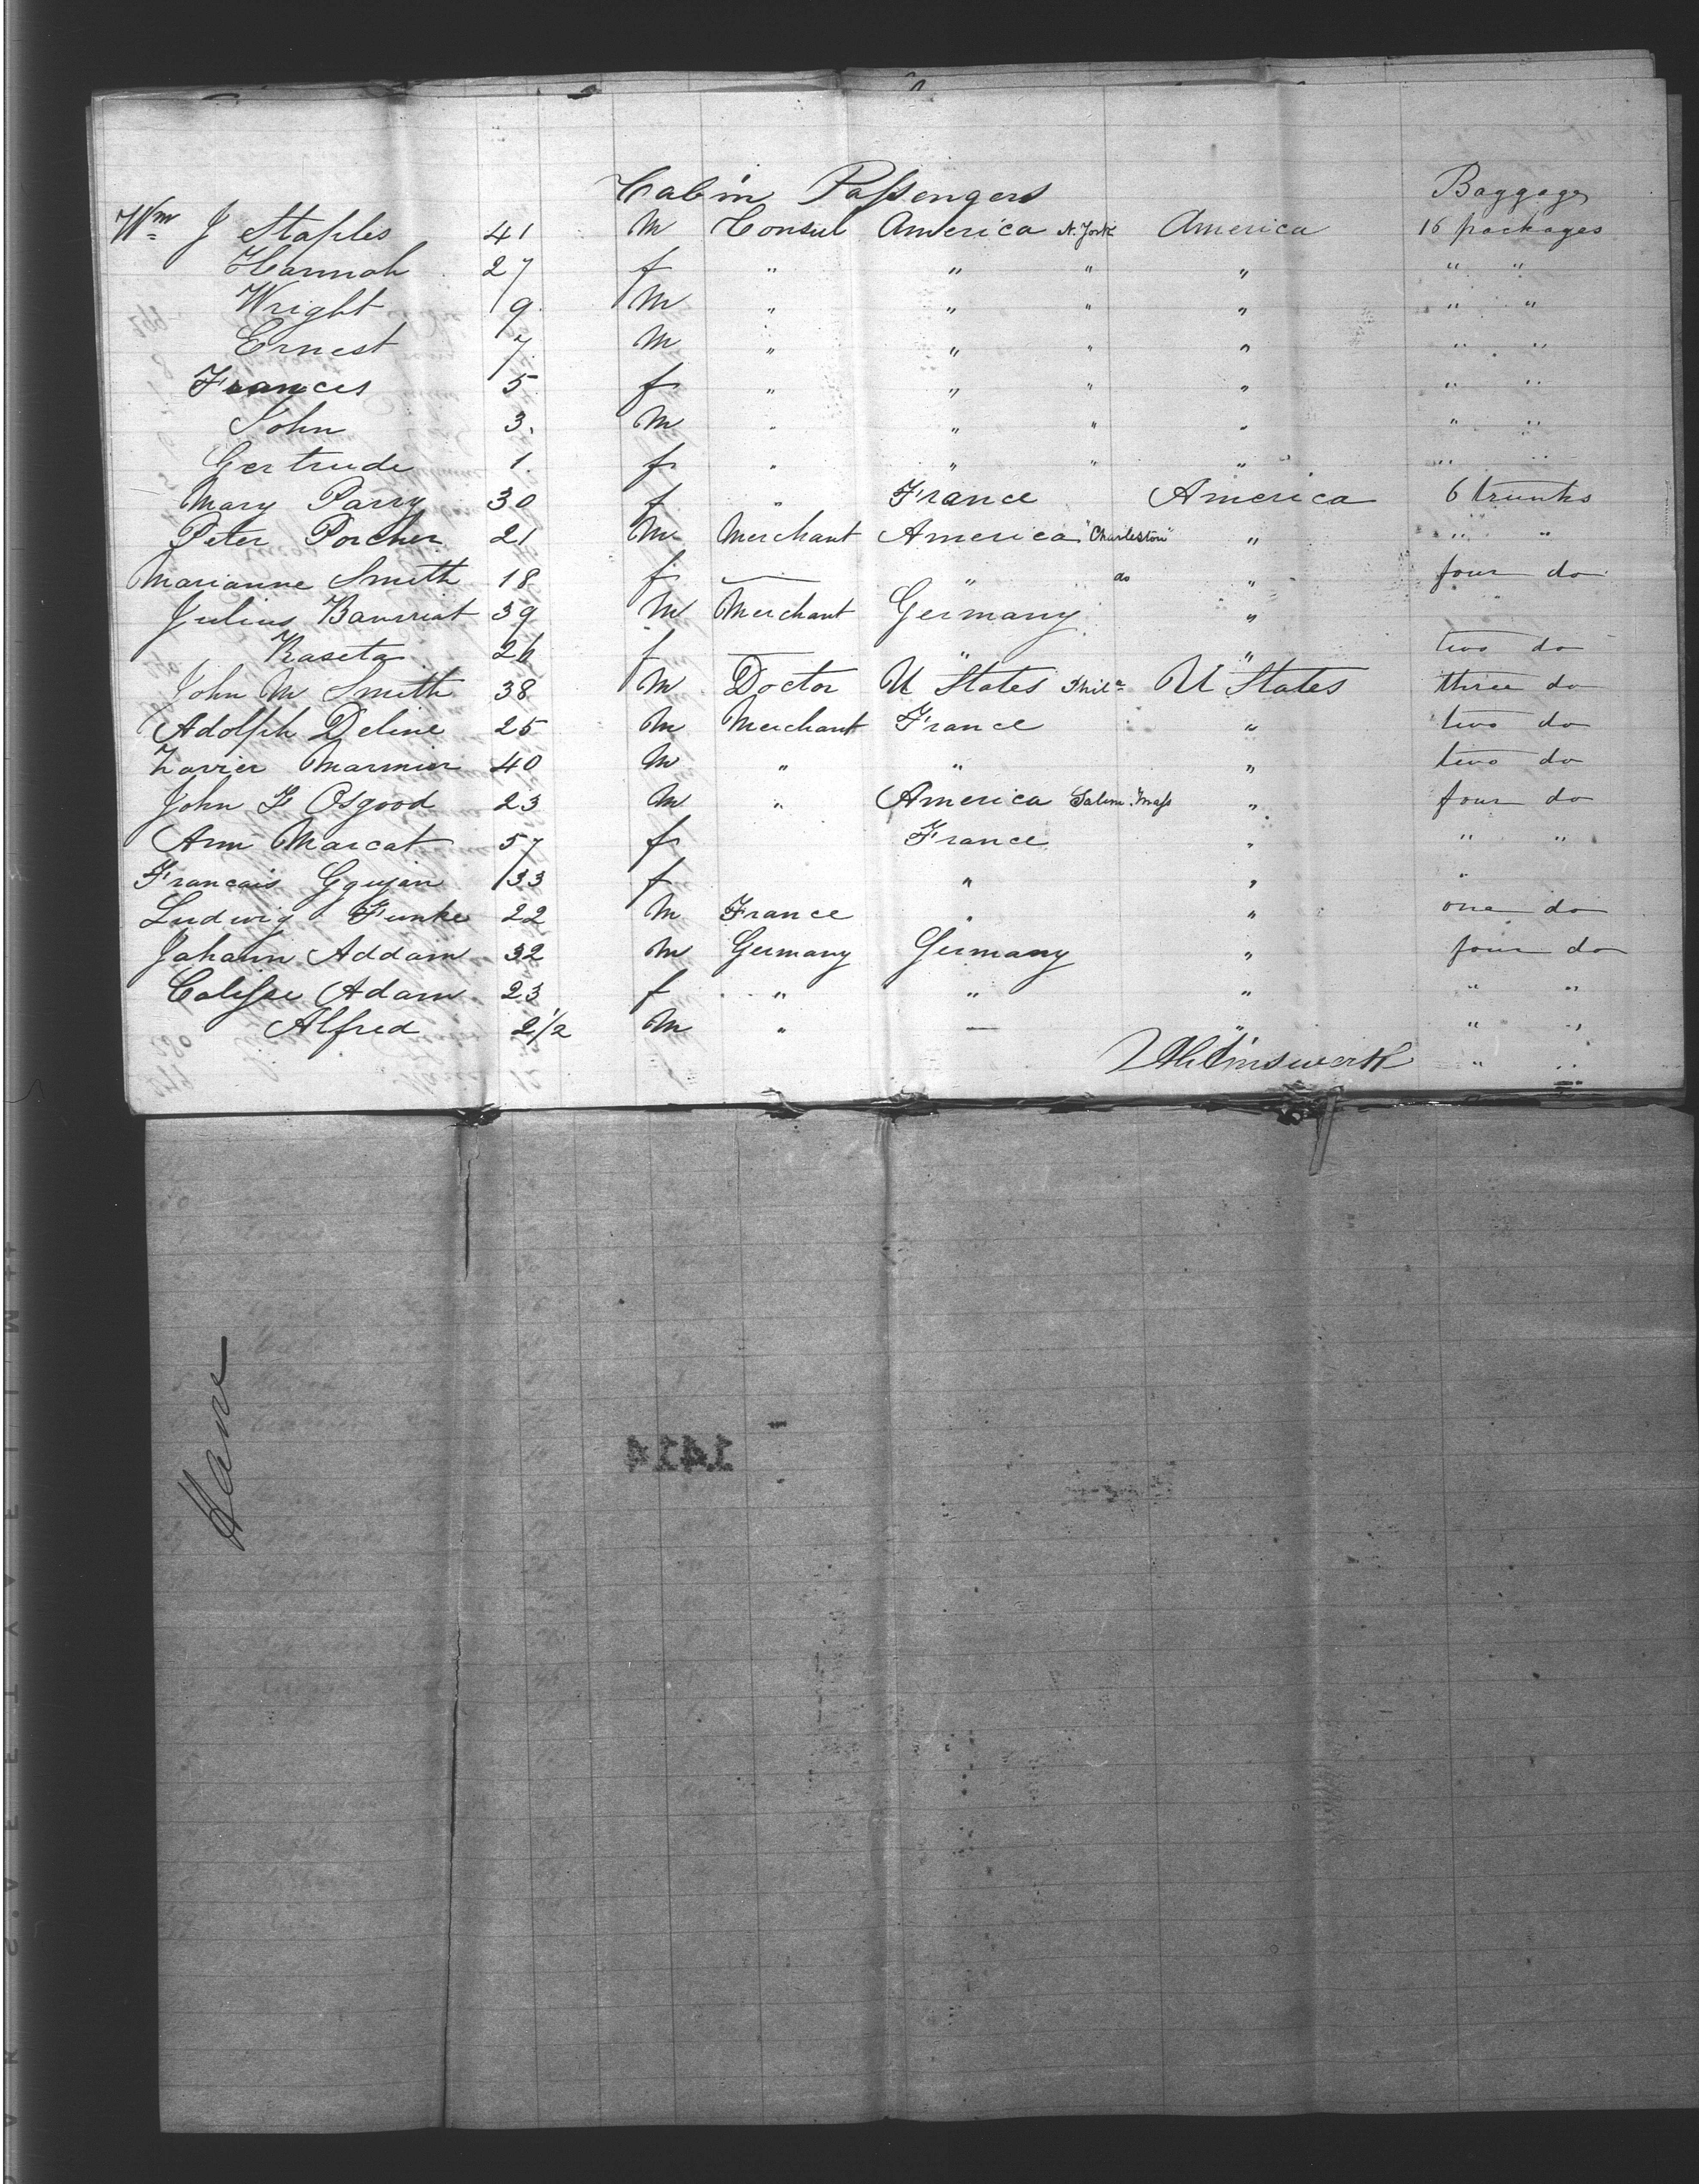 Cabin Passengers Baggage
Wm J Staples 41 M Consul America N. York America 16 packages
Hannah 27 f " " " " " "
Wright 9 M " " " " " "
Ernest 7 M " " " " " "
Frances 5 f " " " " " "
John 3. M " " " " " "
Gertrude 1. f " " " " " "
Mary Parry 30 f " France America 6 trunks
Peter Porcher 21 M Merchant America "Charleston" " " "
Marianne Smith 18 f — " do " four do
Julius 39 M Merchant Germany "
26 f — " " two do
John M Smith 38 M Doctor U States Phila U States three do
Adolph Deline 25 M Merchant France " two do
Xavier Marmier 40 M " " " two do
John F Osgood 23 M " America Salem. Mass " four do
Ann Marcat 57 f France " " "
Francais 33 f " " "
Ludwig Funke 22 M France " " one do
Johann Addam 32 M Germany Germany " four do
Adam 23 f " " " " "
Alfred 2 1/2 M " — " " "
" "
Hav
1414